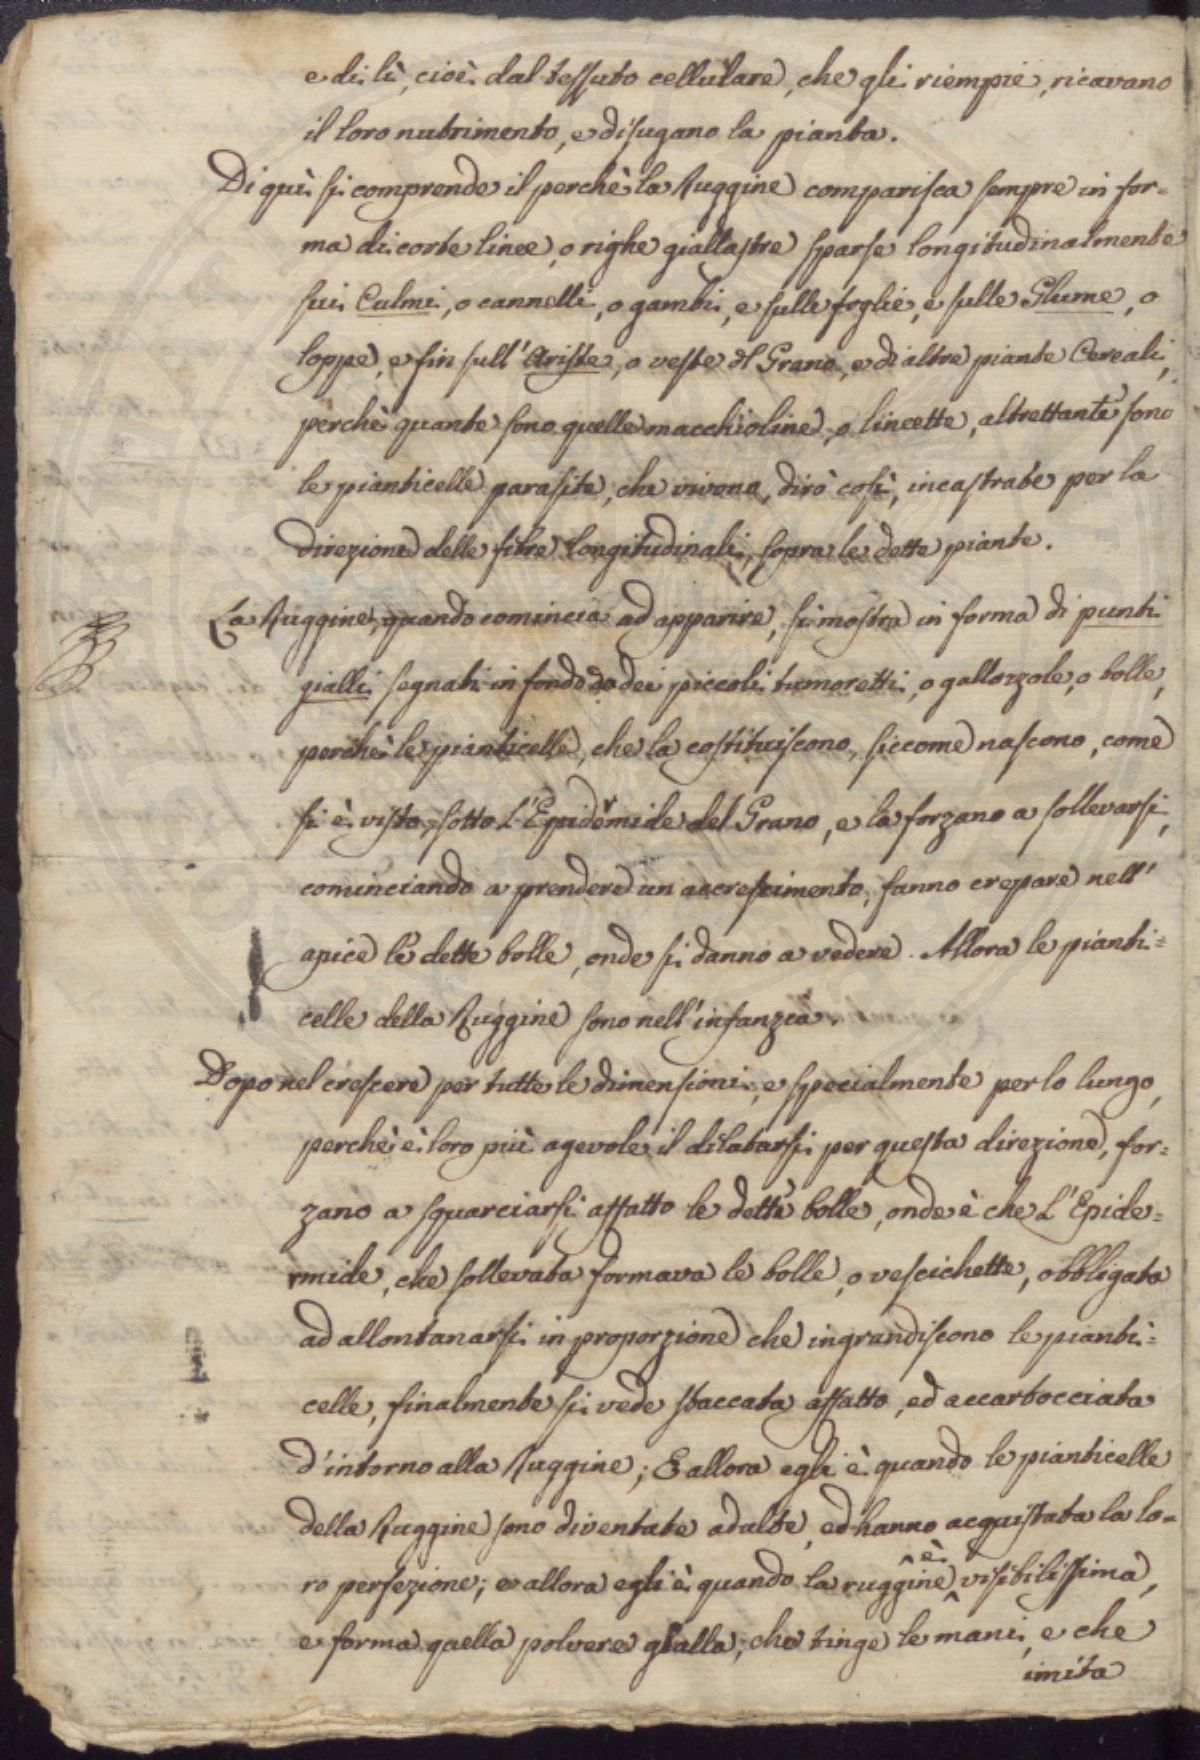 e di lì, cioè dal tessuto cellulare, che gli riempie, ricavano
il loro nutrimento, e disugano la pianta.
Di quì si comprende il perchè la Ruggine comparisca sempre in for=
ma di corte linee, o righe giallastre sparse longitudinalmente
sui Culmi, o cannelli, o gambi, e sulle foglie, e sulle Glume, o
loppe, e fin sull' Ariste, o veste del Grano, e di altre piante Cereali,
perchè quante sono quelle macchioline, o lineette, altrettante sono
le pianticelle parasite, che vivono, dirò così, incastrate per la
direzione delle fibre longitudinali, sopra le dette piante.
La Ruggine, quando comincia ad apparire, si mostra in forma di punti
gialli segnati in fondo da dei piccoli tumoretti, o gallozzole, o bolle,
perchè le pianticelle, che la costituiscono, siccome nascono, come
si è visto, sotto l'Epidermide del Grano, e la forzano a sollevarsi,
cominciando a prendere un accrescimento, fanno crepare nell'
apice le dette bolle, onde si danno a vedere. Allora le pianti=
celle della Ruggine sono nell'infanzia.
Dopo nel crescere per tutte le dimensioni, e specialmente per lo lungo,
perchè è loro più agevole il dilatarsi per questa direzione, for=
zano a squarciarsi affatto le dette bolle, onde è che l'Epide=
rmide, che sollevata formava le bolle, o vescichette, obbligata
ad allontanarsi in proporzione che ingrandiscono le pianti=
celle, finalmente si vede staccata affatto, ed accartocciata
d'intorno alla Ruggine; E allora egli è quando le pianticelle
della Ruggine sono diventate adulte, ed hanno acquistata la lo=
ro perfezione; e allora egli è quando la ruggine è visibilissima,
e forma quella polvere gialla, che tinge le mani, e che
imita